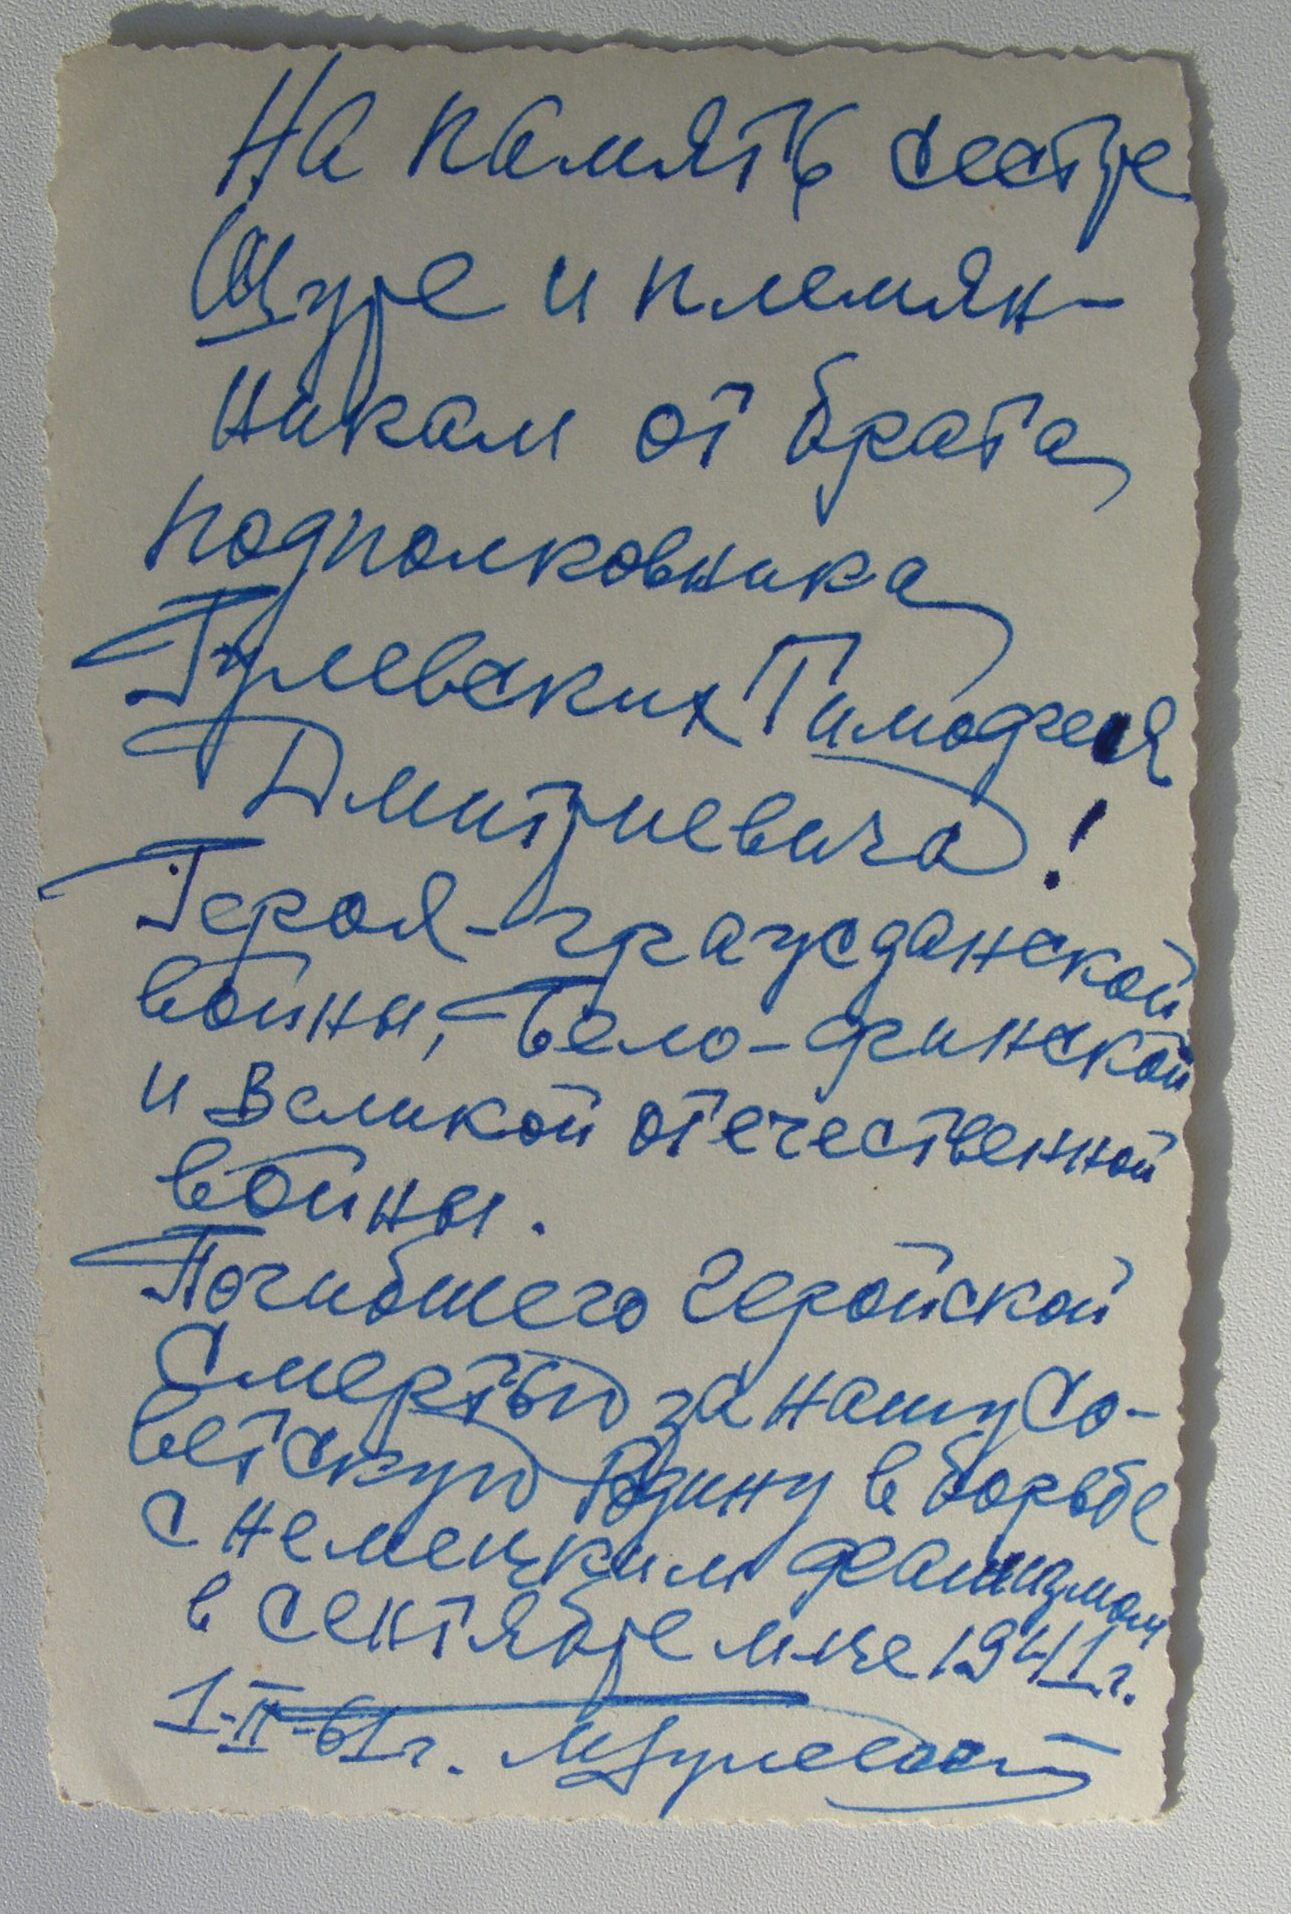 На память сестре
Шуре и племян-
никам от брата
подполковника
Гулевских Тимофея
Дмитриевича!
Героя - гражданской
войны, Бело-финской
и Великой отечественной
войны.
Погибшего геройской
Смертью за нашу Со-
ветскую Родину в борьбе
с немецким фашизмом
в сентябре м-це 1941 г.
1-II-61 г.